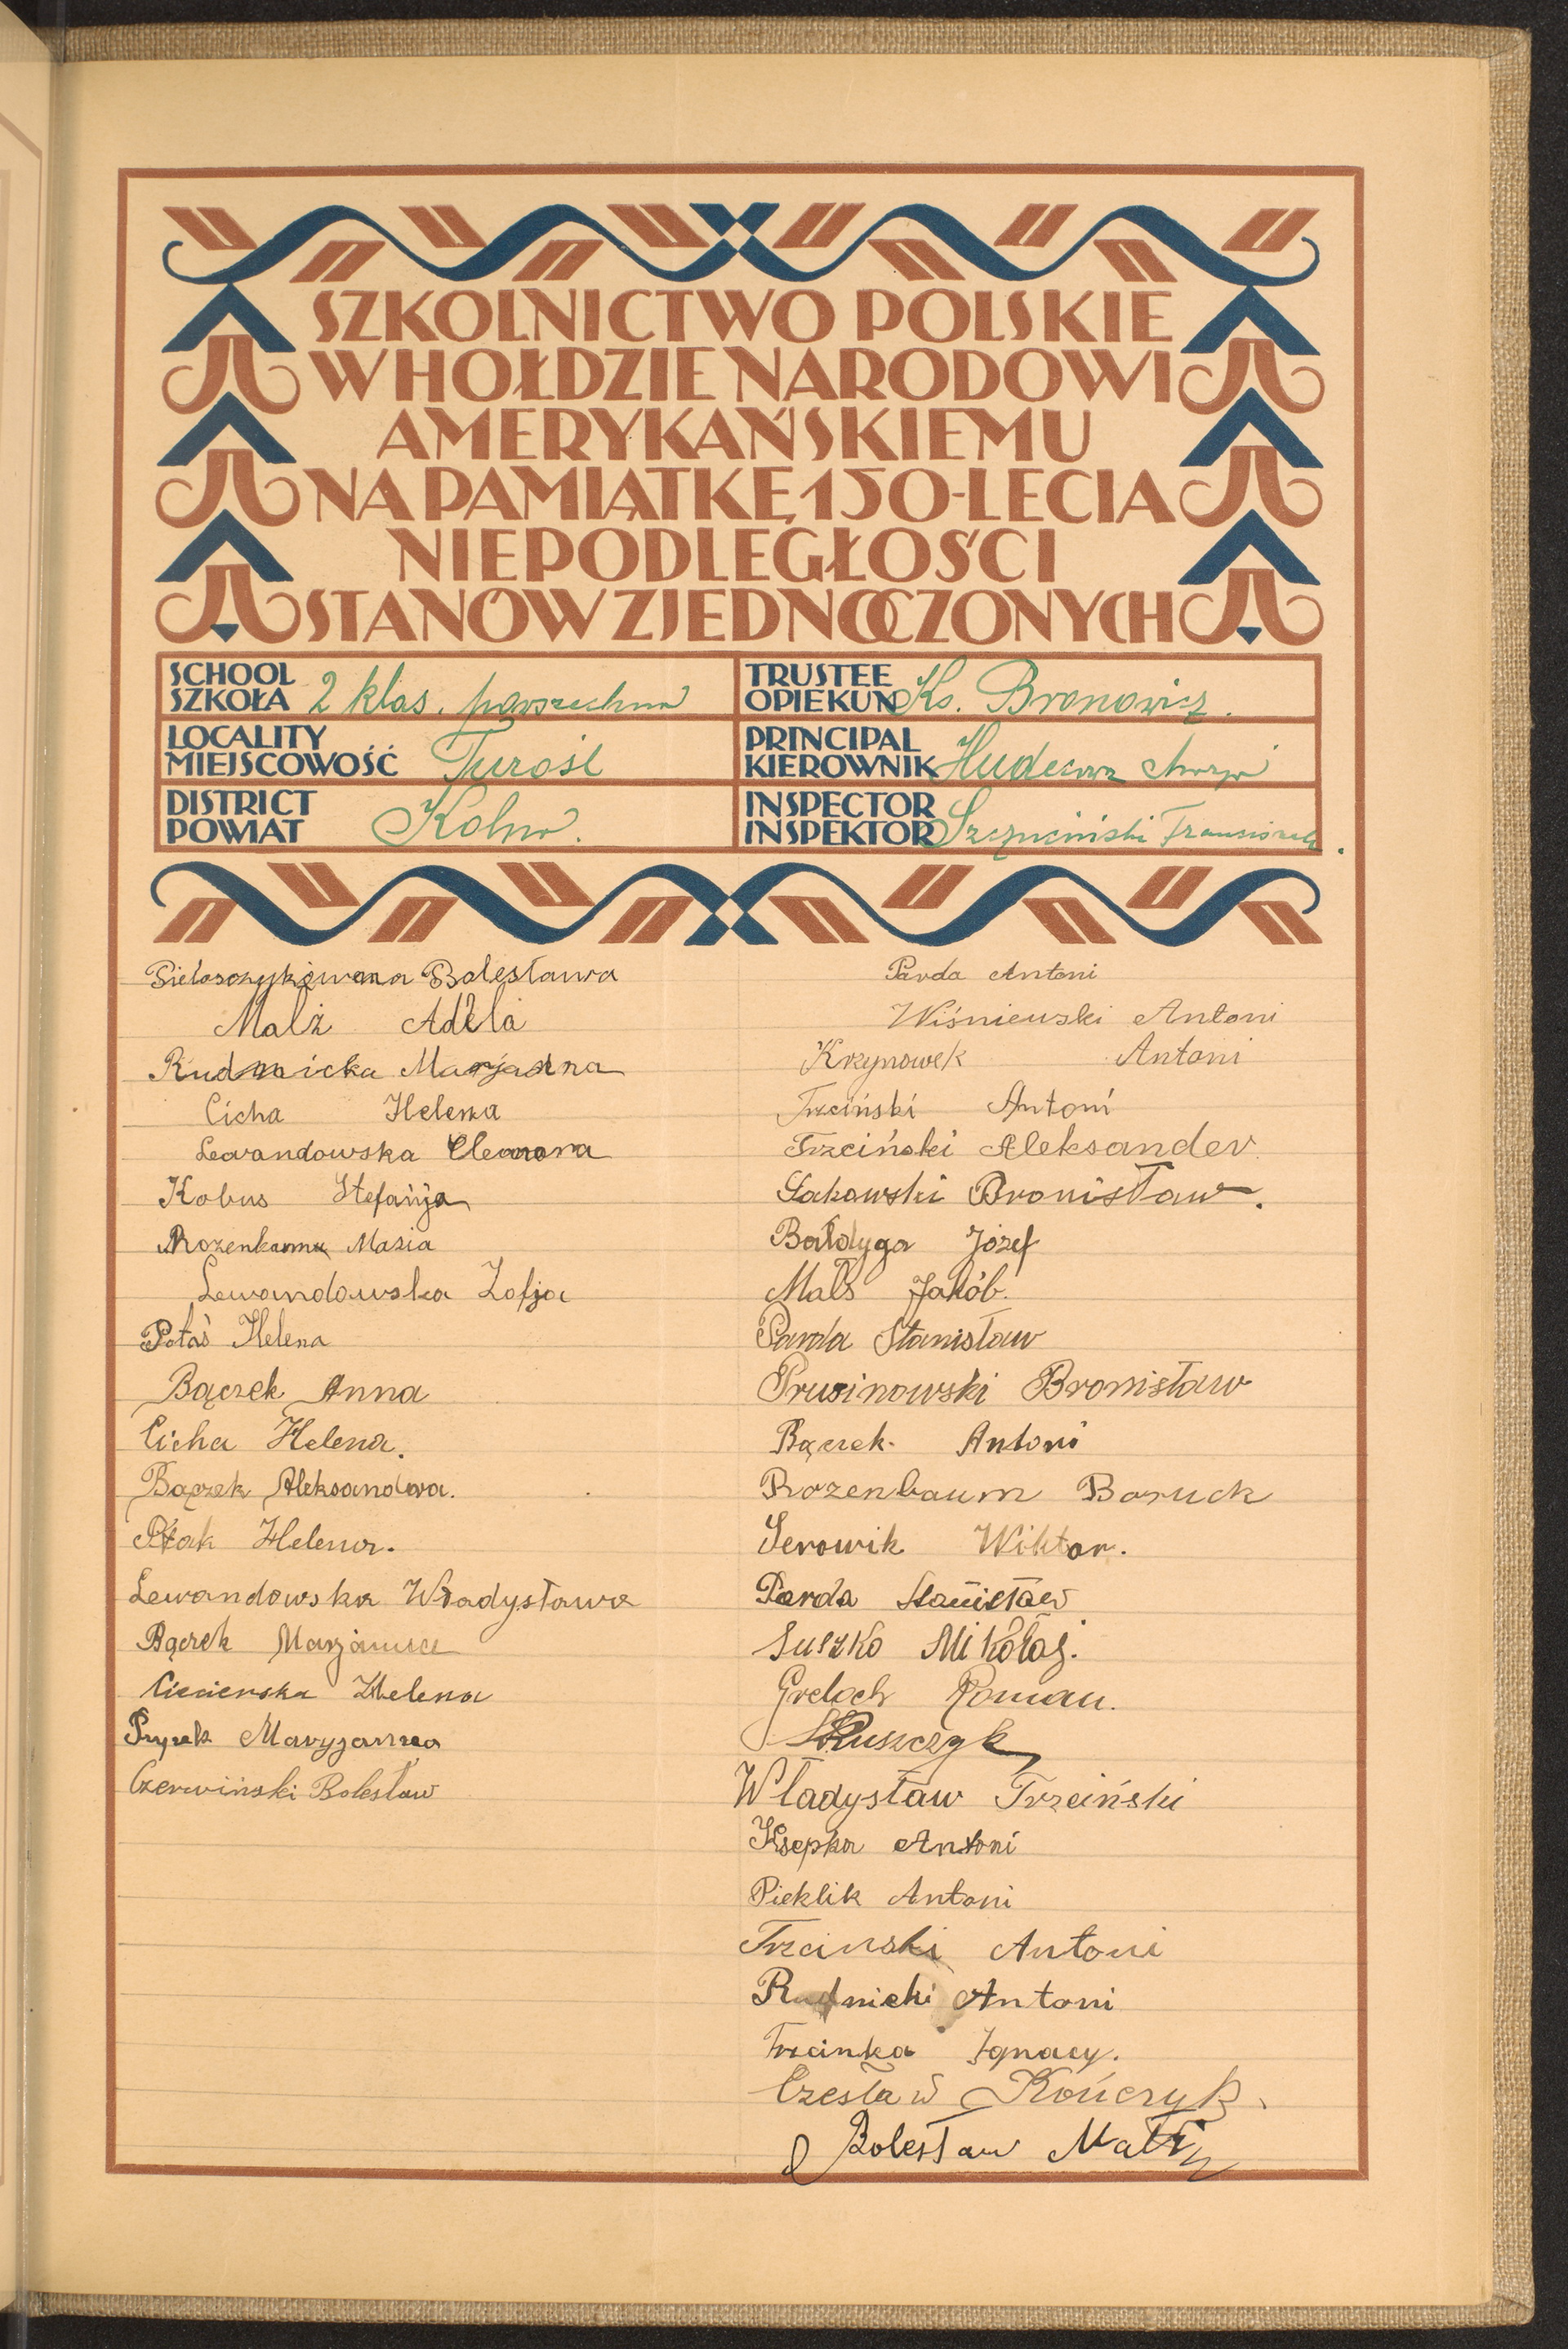 SZKOLNICTWO POLSKIE
W HOŁDZIE NARODOWI
AMERYKAŃSKIEMU
NA PAMIĄTKĘ 150-LECIA
NIEPODLEGŁOŚCI
STANÓW ZJEDNOCZONYCH
SCHOOL
SZKOŁA 2 klas. powszechna
TRUSTEE
OPIEKUN Ks. Bronowicz.
LOCALITY
MIEJSCOWOŚĆ Turośl
PRINCIPAL
KIEROWNIK
DISTRICT
POWIAT Kolno.
INSPECTOR
INSPEKTOR Szczuciński Franciszek.
Bolesława
Malż Adela
Rudnicka Marjanna
Cicha Helena
Lewandowska
Kobus Stefanja
Masia
Lewandowska Zofja
Potaś Helena
Bączek Anna
Cicha Helena.
Bączek Aleksandra.
Ptak Helena.
Lewandowska Władysława
Bączek Marjanna
Ciecierska Helena
Maryjanna
Czerwiński Bolesław
Parda Antoni
Wiśniewski Antoni
Krzynowek Antoni
Trzciński Antoni
Trzciński Aleksander
Łakowski Bronisław.
Bałdyga Józef
Mals Jakób.
Parda Stanisław
Prusinowski Bronisław
Bączek Antoni
Rozenbaum Boruch
Serowik Wiktor.
Parda Stanisław
Suszko Mikołaj.
Greloch Roman.
Ruszczyk
Władysław Trzciński
Ksepka Antoni
Pieklik Antoni
Trzcinski Antoni
Rudnicki Antoni
Trzcinka Ignacy.
Czesław Kończyk.
Bolesław